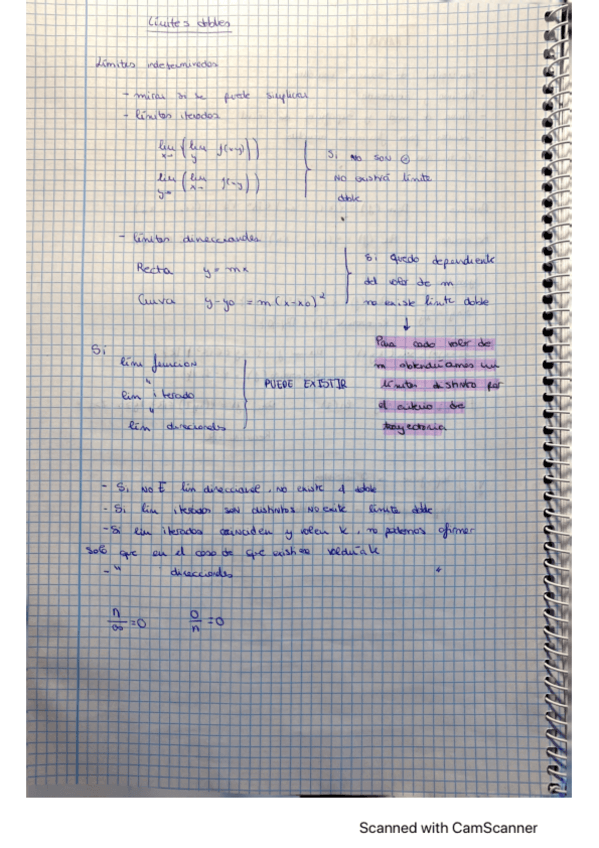 Límites dobles
Límites indeterminados
- mirar si se puede simplificar
- límites iterados
lim x→ (lim y f(x-y))
lim y→ (lim x→ f(x-y))
Si no son =
NO existirá límite
doble
- límites direccionales
Recta y = mx
Curva y-y0 = m(x-x0)²
Si quedo dependiente
del valor de m
no existe límite doble
↓
Para cada valor de
m obtendríamos un
límites distinto por
el criterio de
trayectoria
Si
lím función
"
lim iterado
"
lím direccionales
PUEDE EXISTIR
- Si NO E lim direccional, no existe el doble
- Si lim iterados son distintos NO existe límite doble
- Si lim iterados coinciden y valen K, no podemos afirmar
solo que en el caso de que existiera valdría K
- " direccionales "
n/∞ = 0 0/n = 0
Scanned with CamScanner